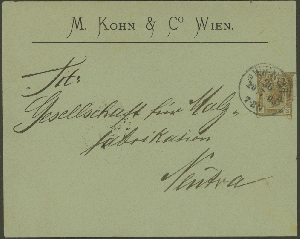 M. KOHN & Cº WIEN.
Tit:
Gesellschaft für Malz-
fabrikation
Neutra